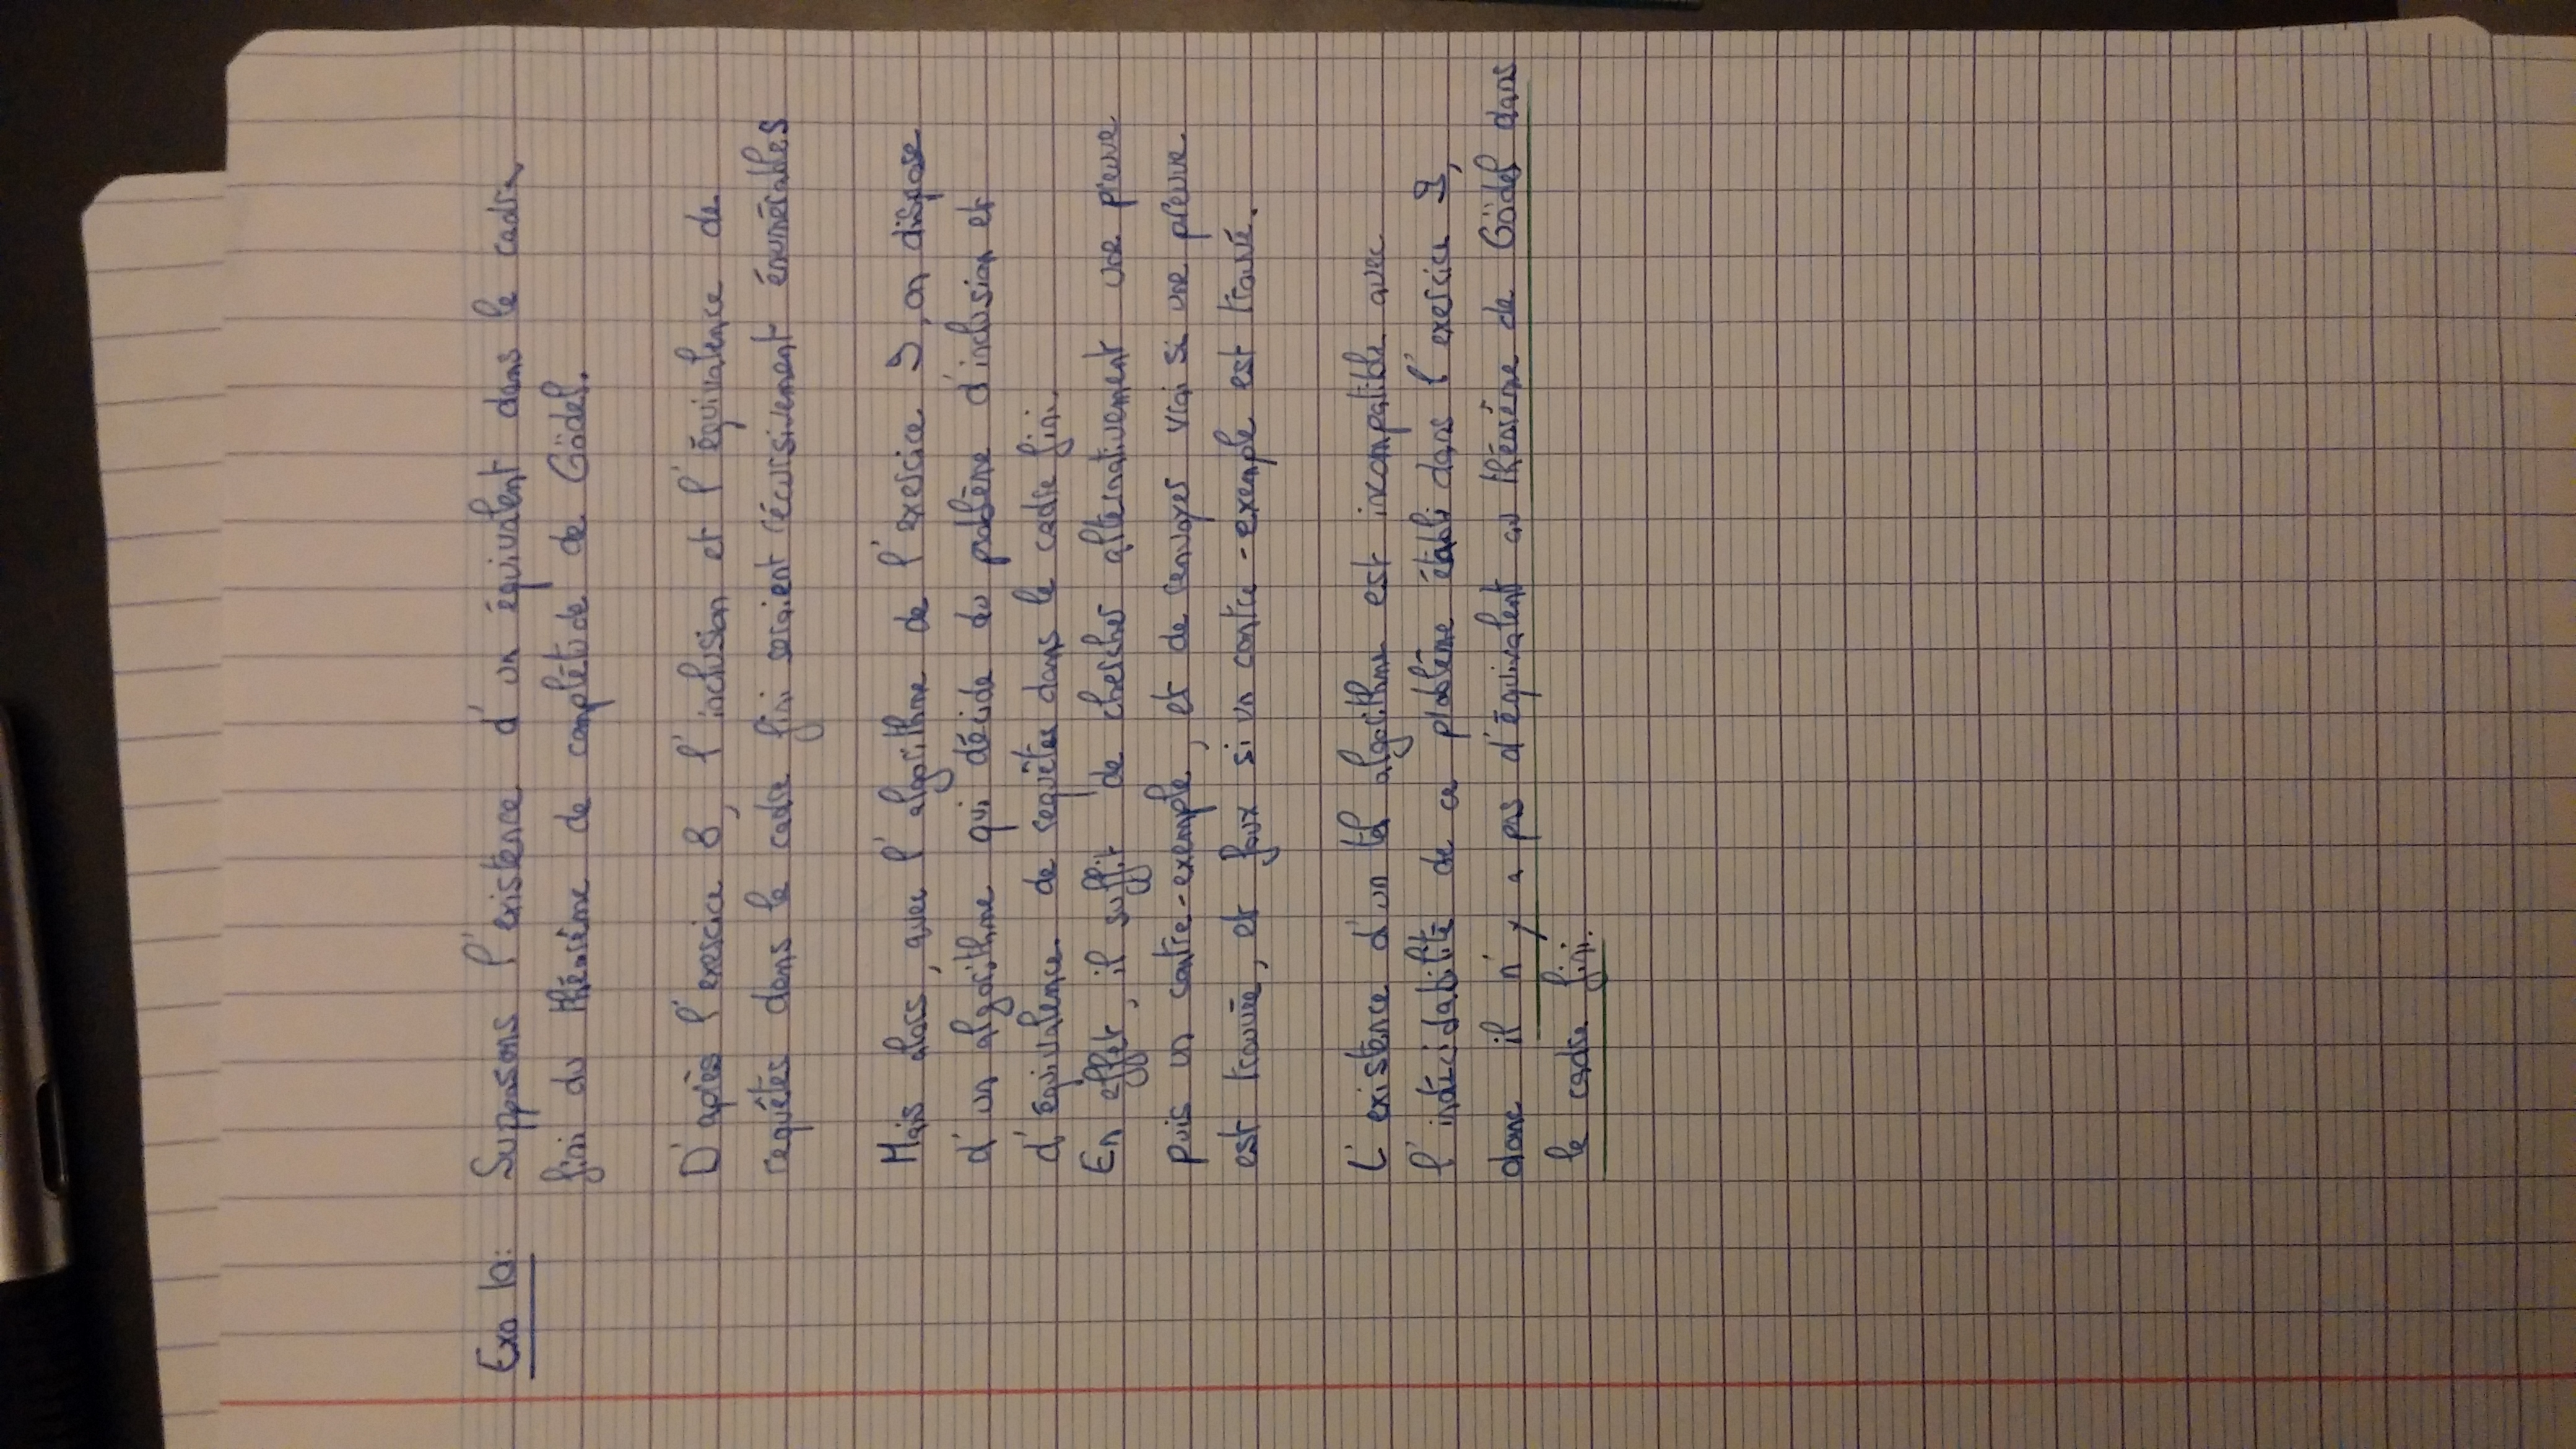 Exo 10: Supposons l'existence d'un équivalent dans le cadre
fini du théorème de complétude de Gödel.
D'après l'exercice 8, l'inclusion et l'équivalence de
requêtes dans le cadre fini seraient récursivement énumérables
Mais alors, avec l'algorithme de l'exercice 9, on dispose
d'un algorithme qui décide du problème d'inclusion et
d'équivalence de requêtes dans le cadre fini.
En effet, il suffit de chercher alternativement une preuve
puis un contre-exemple, et de renvoyer vrai si une preuve
est trouvée, et faux si un contre-exemple est trouvé.
L'existence d'un tel algorithme est incompatible avec
l'indécidabilité de ce problème établi dans l'exercice 9,
donc il n'y a pas d'équivalent au théorème de Gödel dans
le cadre fini.